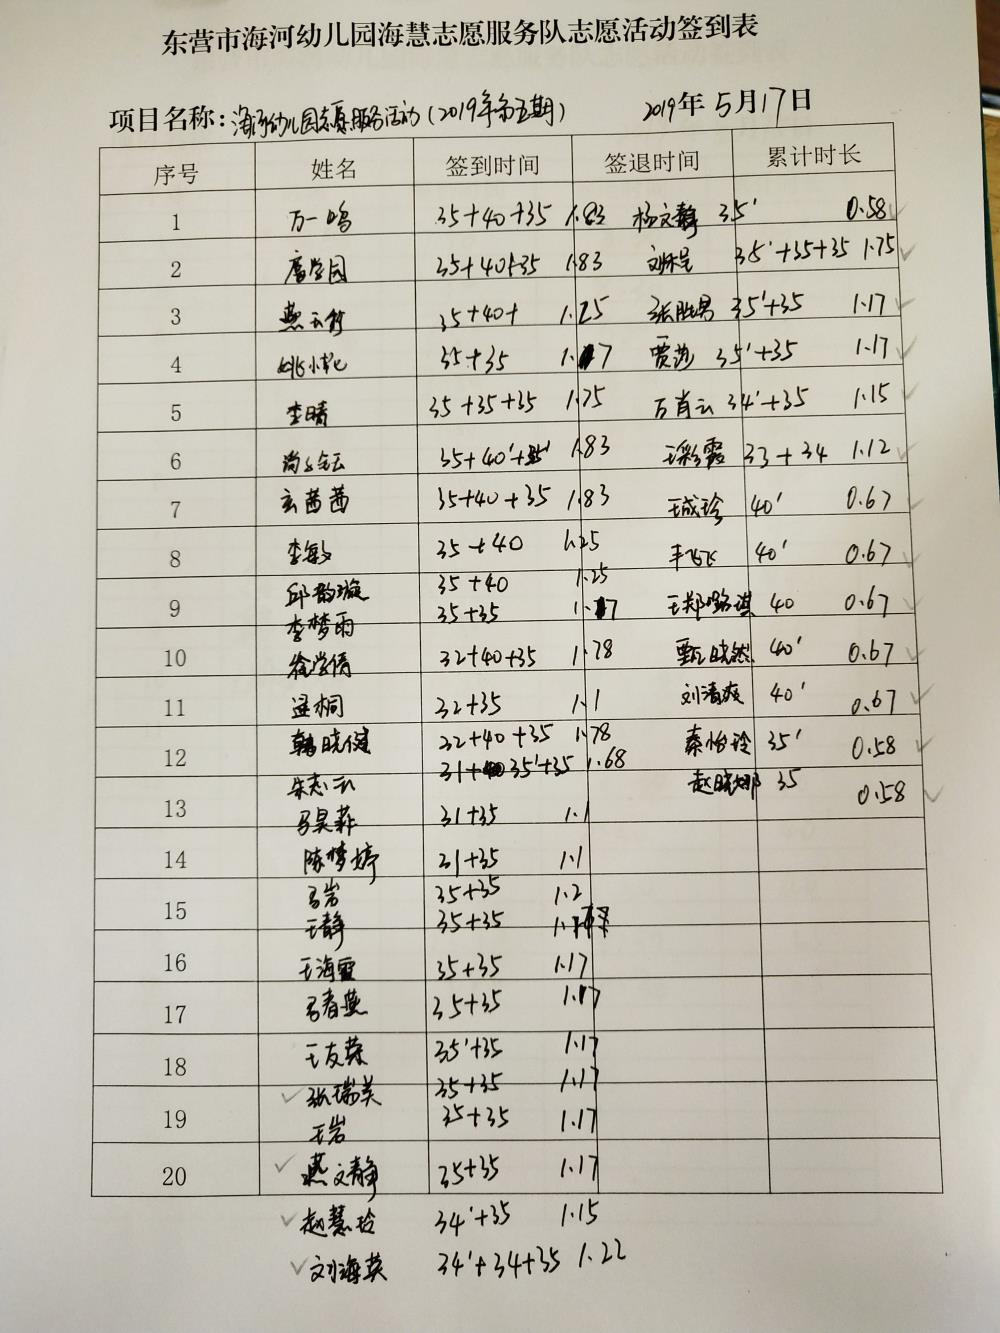 东营市海河幼儿园海慧志愿服务队志愿活动签到表
项目名称: 海河幼儿园志愿服务活动(2019年第五期) 2019年5月17日
序号 姓名 签到时间 签退时间 累计时长
1 万一鸣 35+40+35 1.83 杨文静 35' 0.58
2 学园 35+40+35 1.83 35'+35+35 1.75
3 燕云舒 35+40+ 1.25 张胜男 35'+35 1.17
4 姚 35+35 1.17 贾莎 35'+35 1.17
5 李晴 35+35+35 1.75 万肖云 34'+35 1.15
6 35+40'+35' 1.83 王彩霞 33+34 1.12
7 玄茜茜 35+40+35 1.83 王成玲 40' 0.67
8 李敏 35+40 1.25 丰飞飞 40' 0.67
邱韵璇 35+40 1.25
9 李梦雨 35+35 1.17 王郑璐琪 40 0.67
10 徐学倩 32+40+35 1.78 甄晓然 40' 0.67
11 逯桐 32+35 1.1 刘清爽 40' 0.67
12 韩晓健 32+40+35 1.78 秦怡玲 35' 0.58
朱志云 31+35'+35 1.68 赵晓娜 35 0.58
13 马昊菲 31+35 1.1
14 陈梦婷 31+35 1.1
15 马岩 35+35 1.2
王静 35+35
16 王海霞 35+35 1.17
17 马春燕 35+35 1.17
18 王友荣 35'+35 1.17
张瑞英 35+35 1.17
19 王岩 35+35 1.17
20 燕文静 35+35 1.17
赵慧玲 34'+35 1.15
刘海英 34'+34+35 1.22